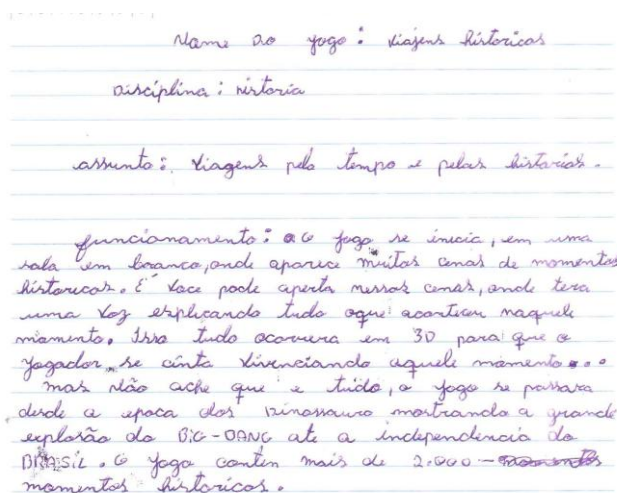 Name do jogo: viajens históricas
Disciplina: historia
assunto: viagens pelo tempo e pelas historias.
funcionamento: O jogo se inicia, em uma
sala em branco, onde aparece muitas cenas de momentos
históricos. E voce pode aperta nessas cenas, onde tera
uma voz esplicando tudo oque aconticeu naquele
momento. Isso tudo ocorrera em 3D para que o
jogador, se cinta vivenciando aquele momento...
mas não ache que e tudo, o jogo se passara
desde a epoca dos Dinossauro mostrando a grande
esplosão do BIG-BANG ate a independencia do
BRASIL. O jogo contin mais de 2.000
momentos históricos.